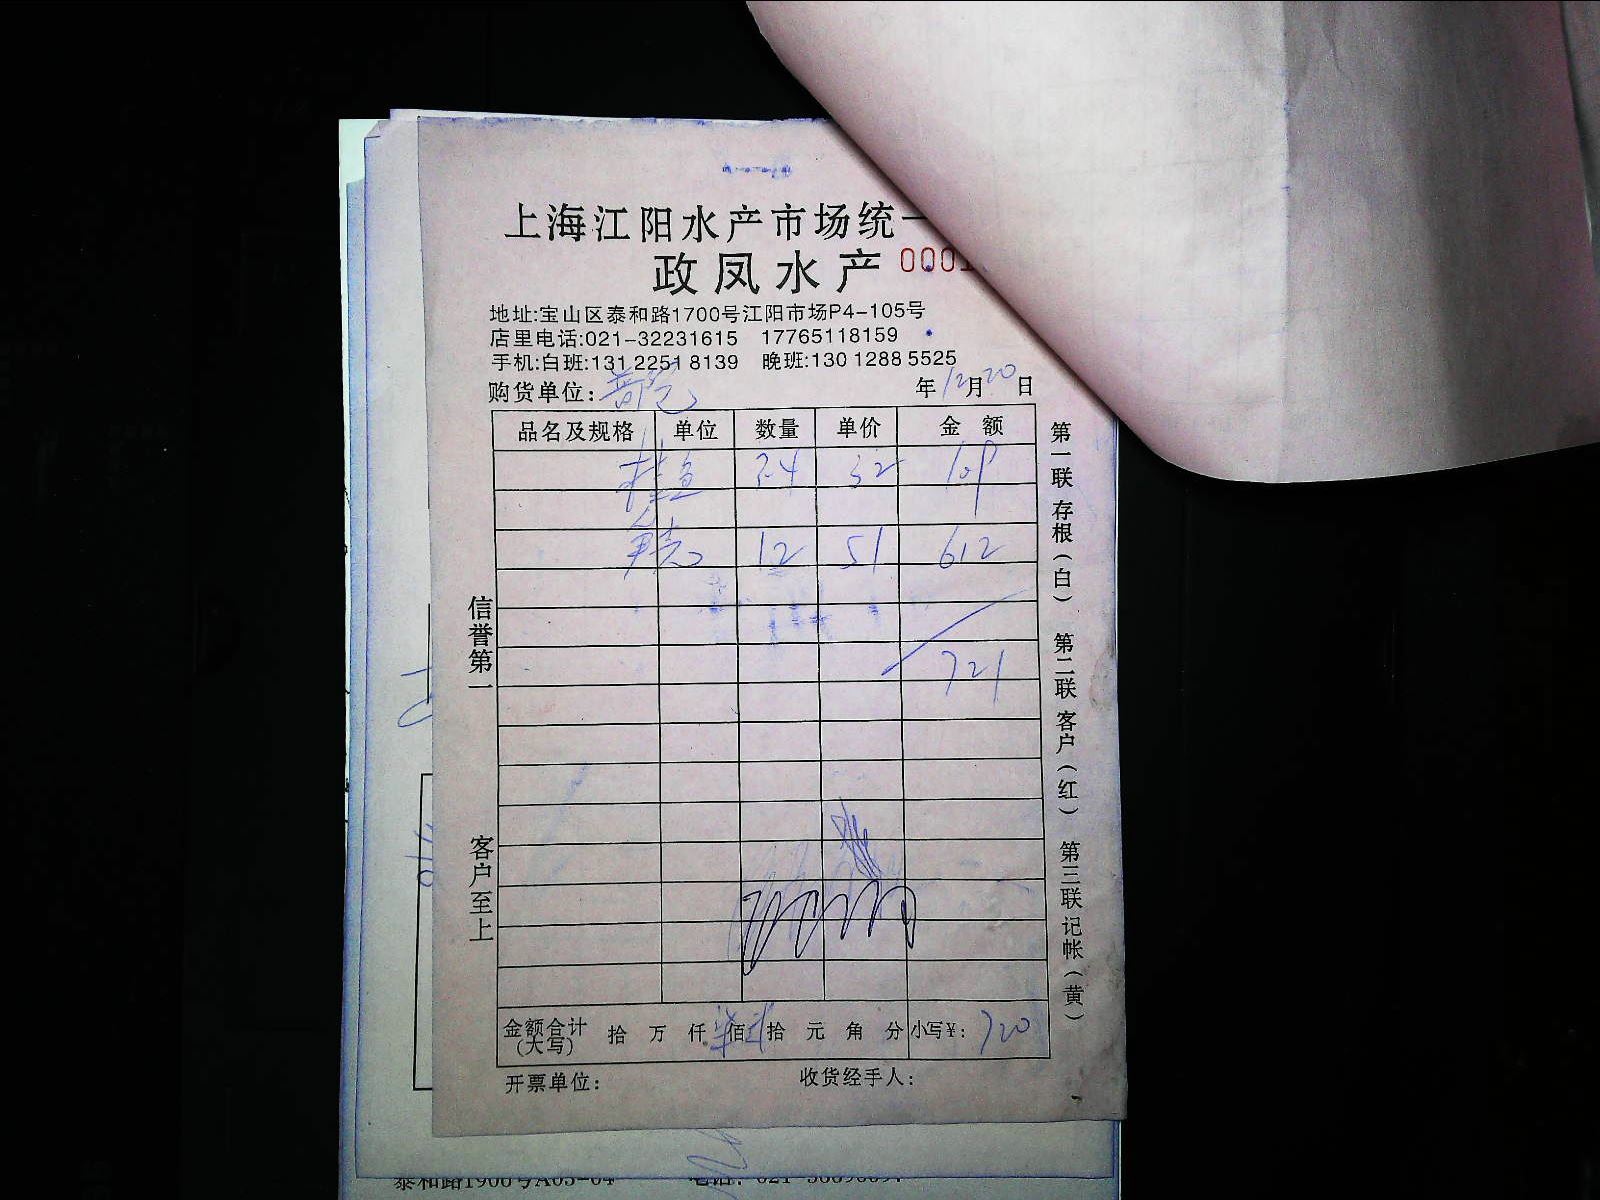 上海江阳水产市场统一
政凤水产 0001
地址:宝山区泰和路1700号江阳市场P4-105号
店里电话:021-32231615 17765118159
手机:白班:131 2251 8139 晚班:130 1288 5525
购货单位: 年12月20日
品名及规格 单位 数量 单价 金额
桂鱼 3.4 32 109
12 51 612
721
金额合计(大写) 拾 万 仟 佰 拾 元 角 分 小写¥: 720
开票单位: 收货经手人:
信誉第一
客户至上
第一联 存根(白) 第二联 客户(红) 第三联 记帐(黄)